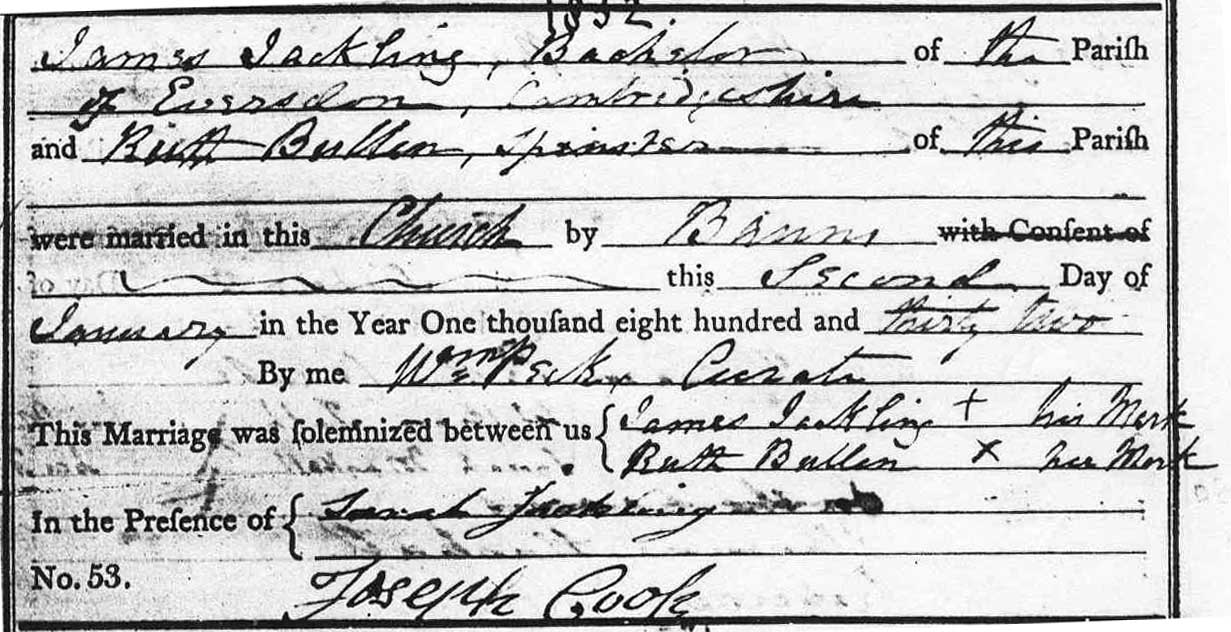 1832
James Jackling, Bachelor of the Pariſh
of Eversdon, Cambridgeshire
and Ruth Bullen, Spinster of this Pariſh
were married in this Church by Banns with Conſent of
this Second Day of
January in the Year One thouſand eight hundred and thirty two
By me Wm Peck, Curate
This Marriage was ſolemnized between us { James Jackling + his Mark
Ruth Bullen x her Mark
In the Preſence of { Sarah Jackling
Joseph Cook
No. 53.